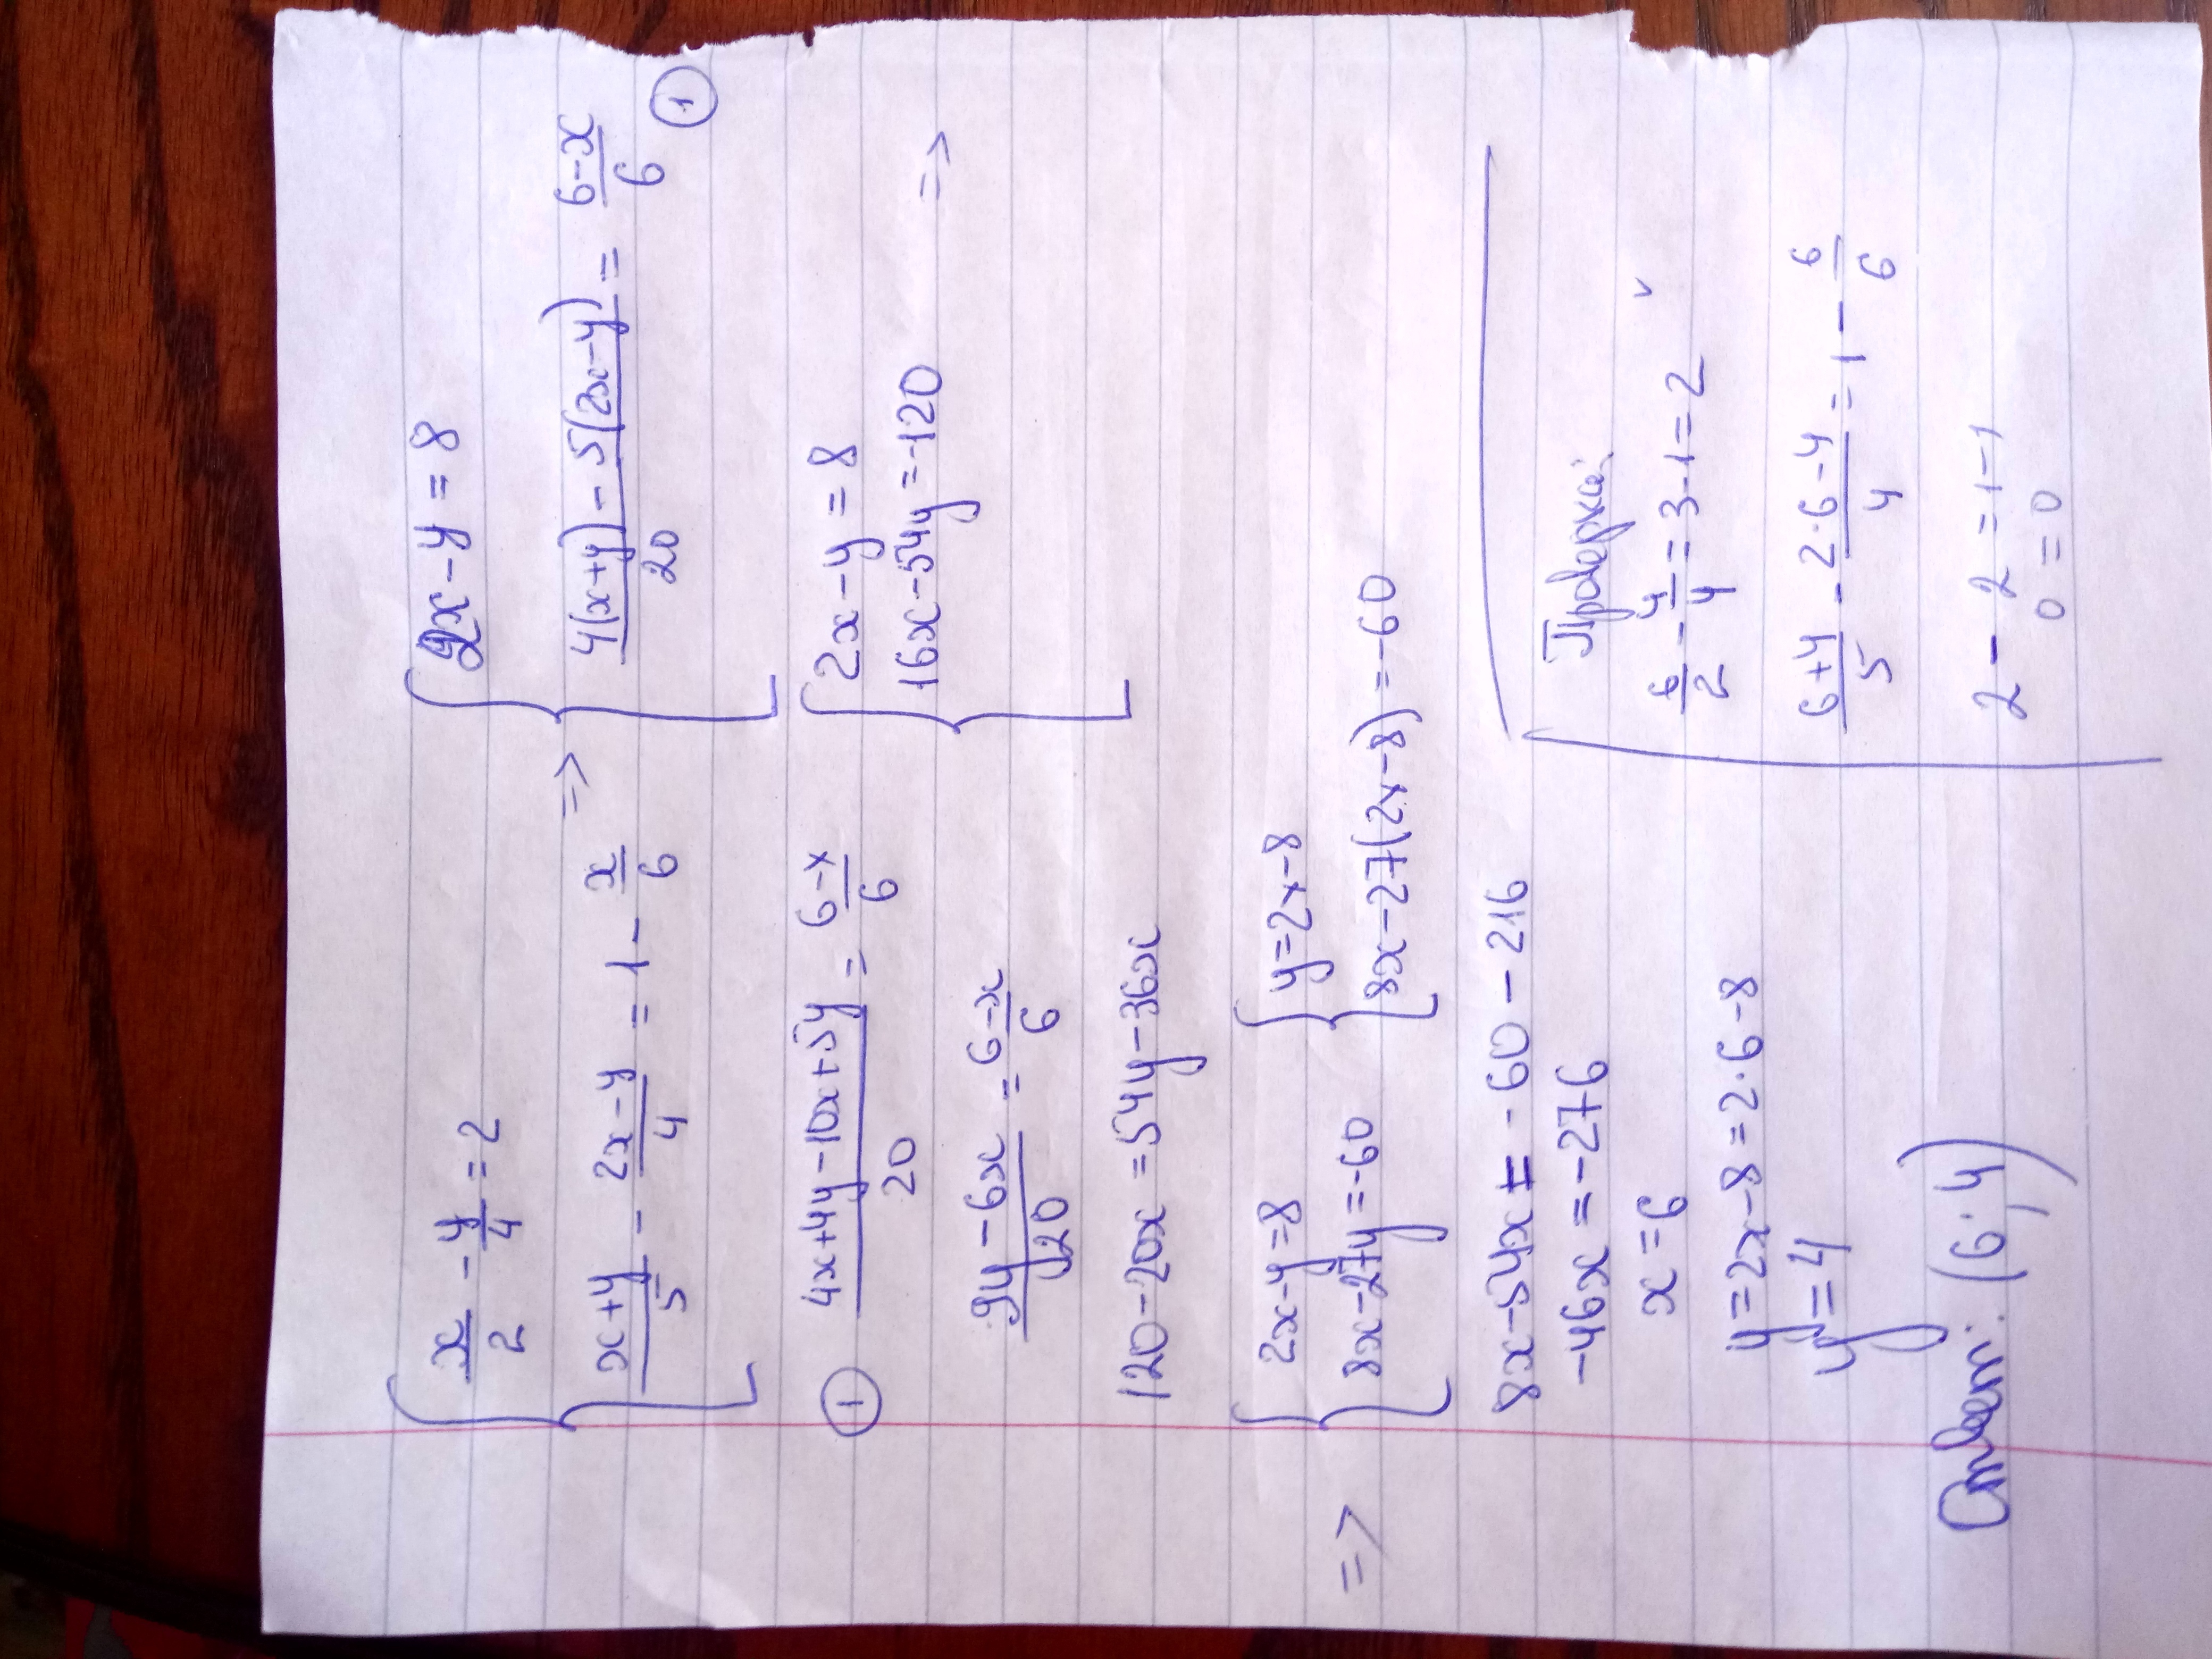 x/2 - y/4 = 2
(x+y)/5 - (2x-y)/4 = 1 - x/6 =>
2x - y = 8
(4(x+y) - 5(2x-y))/20 = (6-x)/6 ①
① (4x+4y-10x+5y)/20 = (6-x)/6
(9y-6x)/20 = (6-x)/6
120-20x = 54y-36x
2x - y = 8
16x-54y=-120 =>
=> 2x-y=8
8x-27y=-60
y=2x-8
8x-27(2x-8)=-60
8x-54x = -60-216
-46x = -276
x=6
y=2x-8=2·6-8
y=4
Ответ: (6;4)
Проверка:
6/2 - 4/4 = 3-1=2 ✓
(6+4)/5 - (2·6-4)/4 = 1 - 6/6
2 - 2 = 1-1
0 = 0